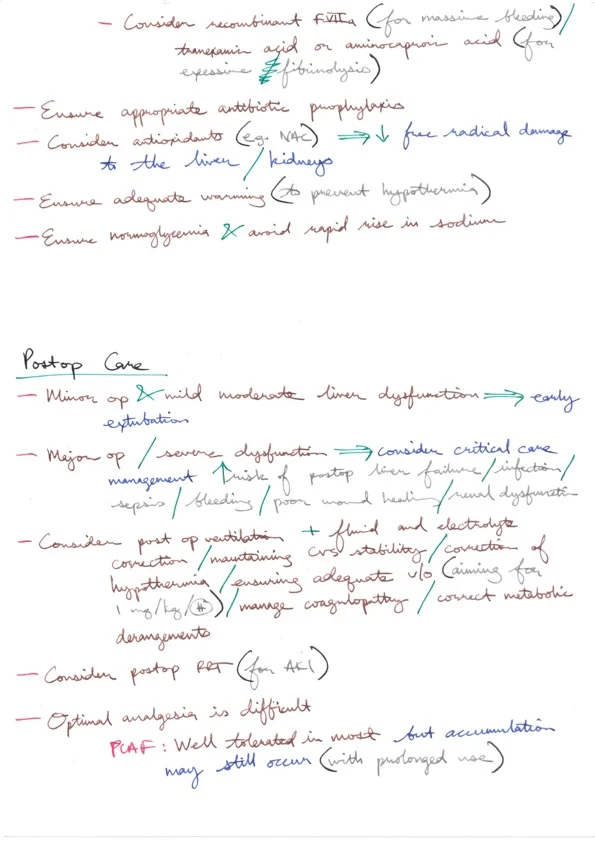 — Consider recombinant FVIIa (for massive bleeding) /
tranexamic acid or aminocaproic acid (for
excessive fibrinolysis)
— Ensure appropriate antibiotic prophylaxis
— Consider antioxidants (eg. NAC) ⇒ ↓ free radical damage
to the liver / kidneys
— Ensure adequate warming (to prevent hypothermia)
— Ensure normoglycemia & avoid rapid rise in sodium
Postop Care
— Minor op & mild moderate liver dysfunction ⇒ early
extubation
— Major op / severe dysfunction ⇒ consider critical care
management ↑risk of postop liver failure / infection /
sepsis / bleeding / poor wound healing / renal dysfunction
— Consider post op ventilation + fluid and electrolyte
correction / maintaining CVS stability / correction of
hypothermia / ensuring adequate u/o (aiming for
1 mg/kg/H) / manage coagulopathy / correct metabolic
derangements
— Consider postop RRT (for AKI)
— Optimal analgesia is difficult
PCAF : Well tolerated in most but accumulation
may still occur (with prolonged use)